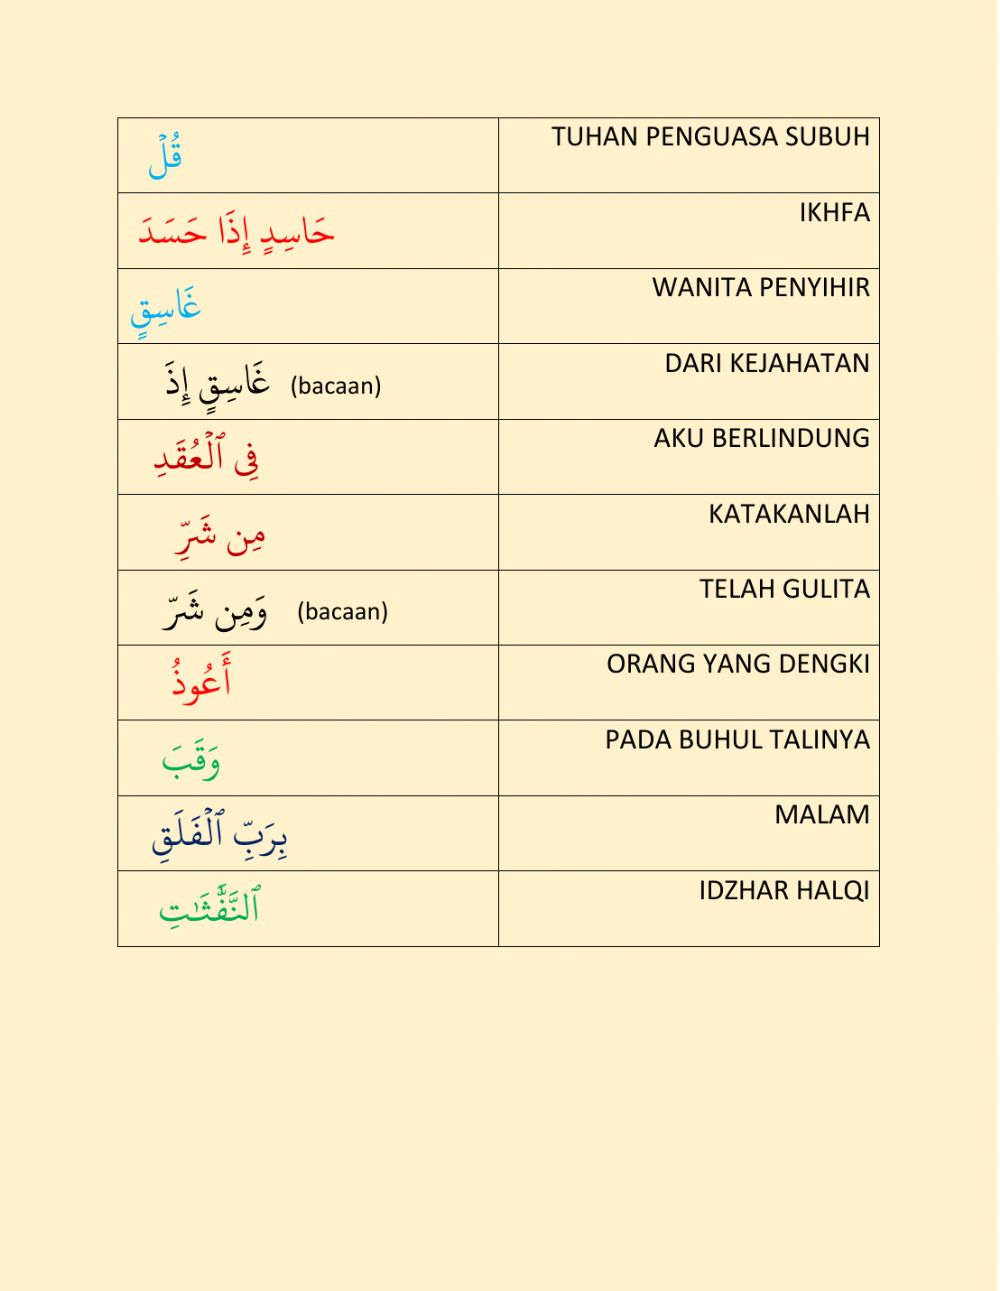 قُلۡ TUHAN PENGUASA SUBUH
حَاسِدٍ إِذَا حَسَدَ IKHFA
غَاسِقٍ WANITA PENYIHIR
غَاسِقٍ إِذَ (bacaan) DARI KEJAHATAN
فِى ٱلۡعُقَدِ AKU BERLINDUNG
مِن شَرِّ KATAKANLAH
وَمِن شَرّ (bacaan) TELAH GULITA
أَعُوذُ ORANG YANG DENGKI
وَقَبَ PADA BUHUL TALINYA
بِرَبِّ ٱلۡفَلَقِ MALAM
ٱلنَّفَّٰثَٰتِ IDZHAR HALQI